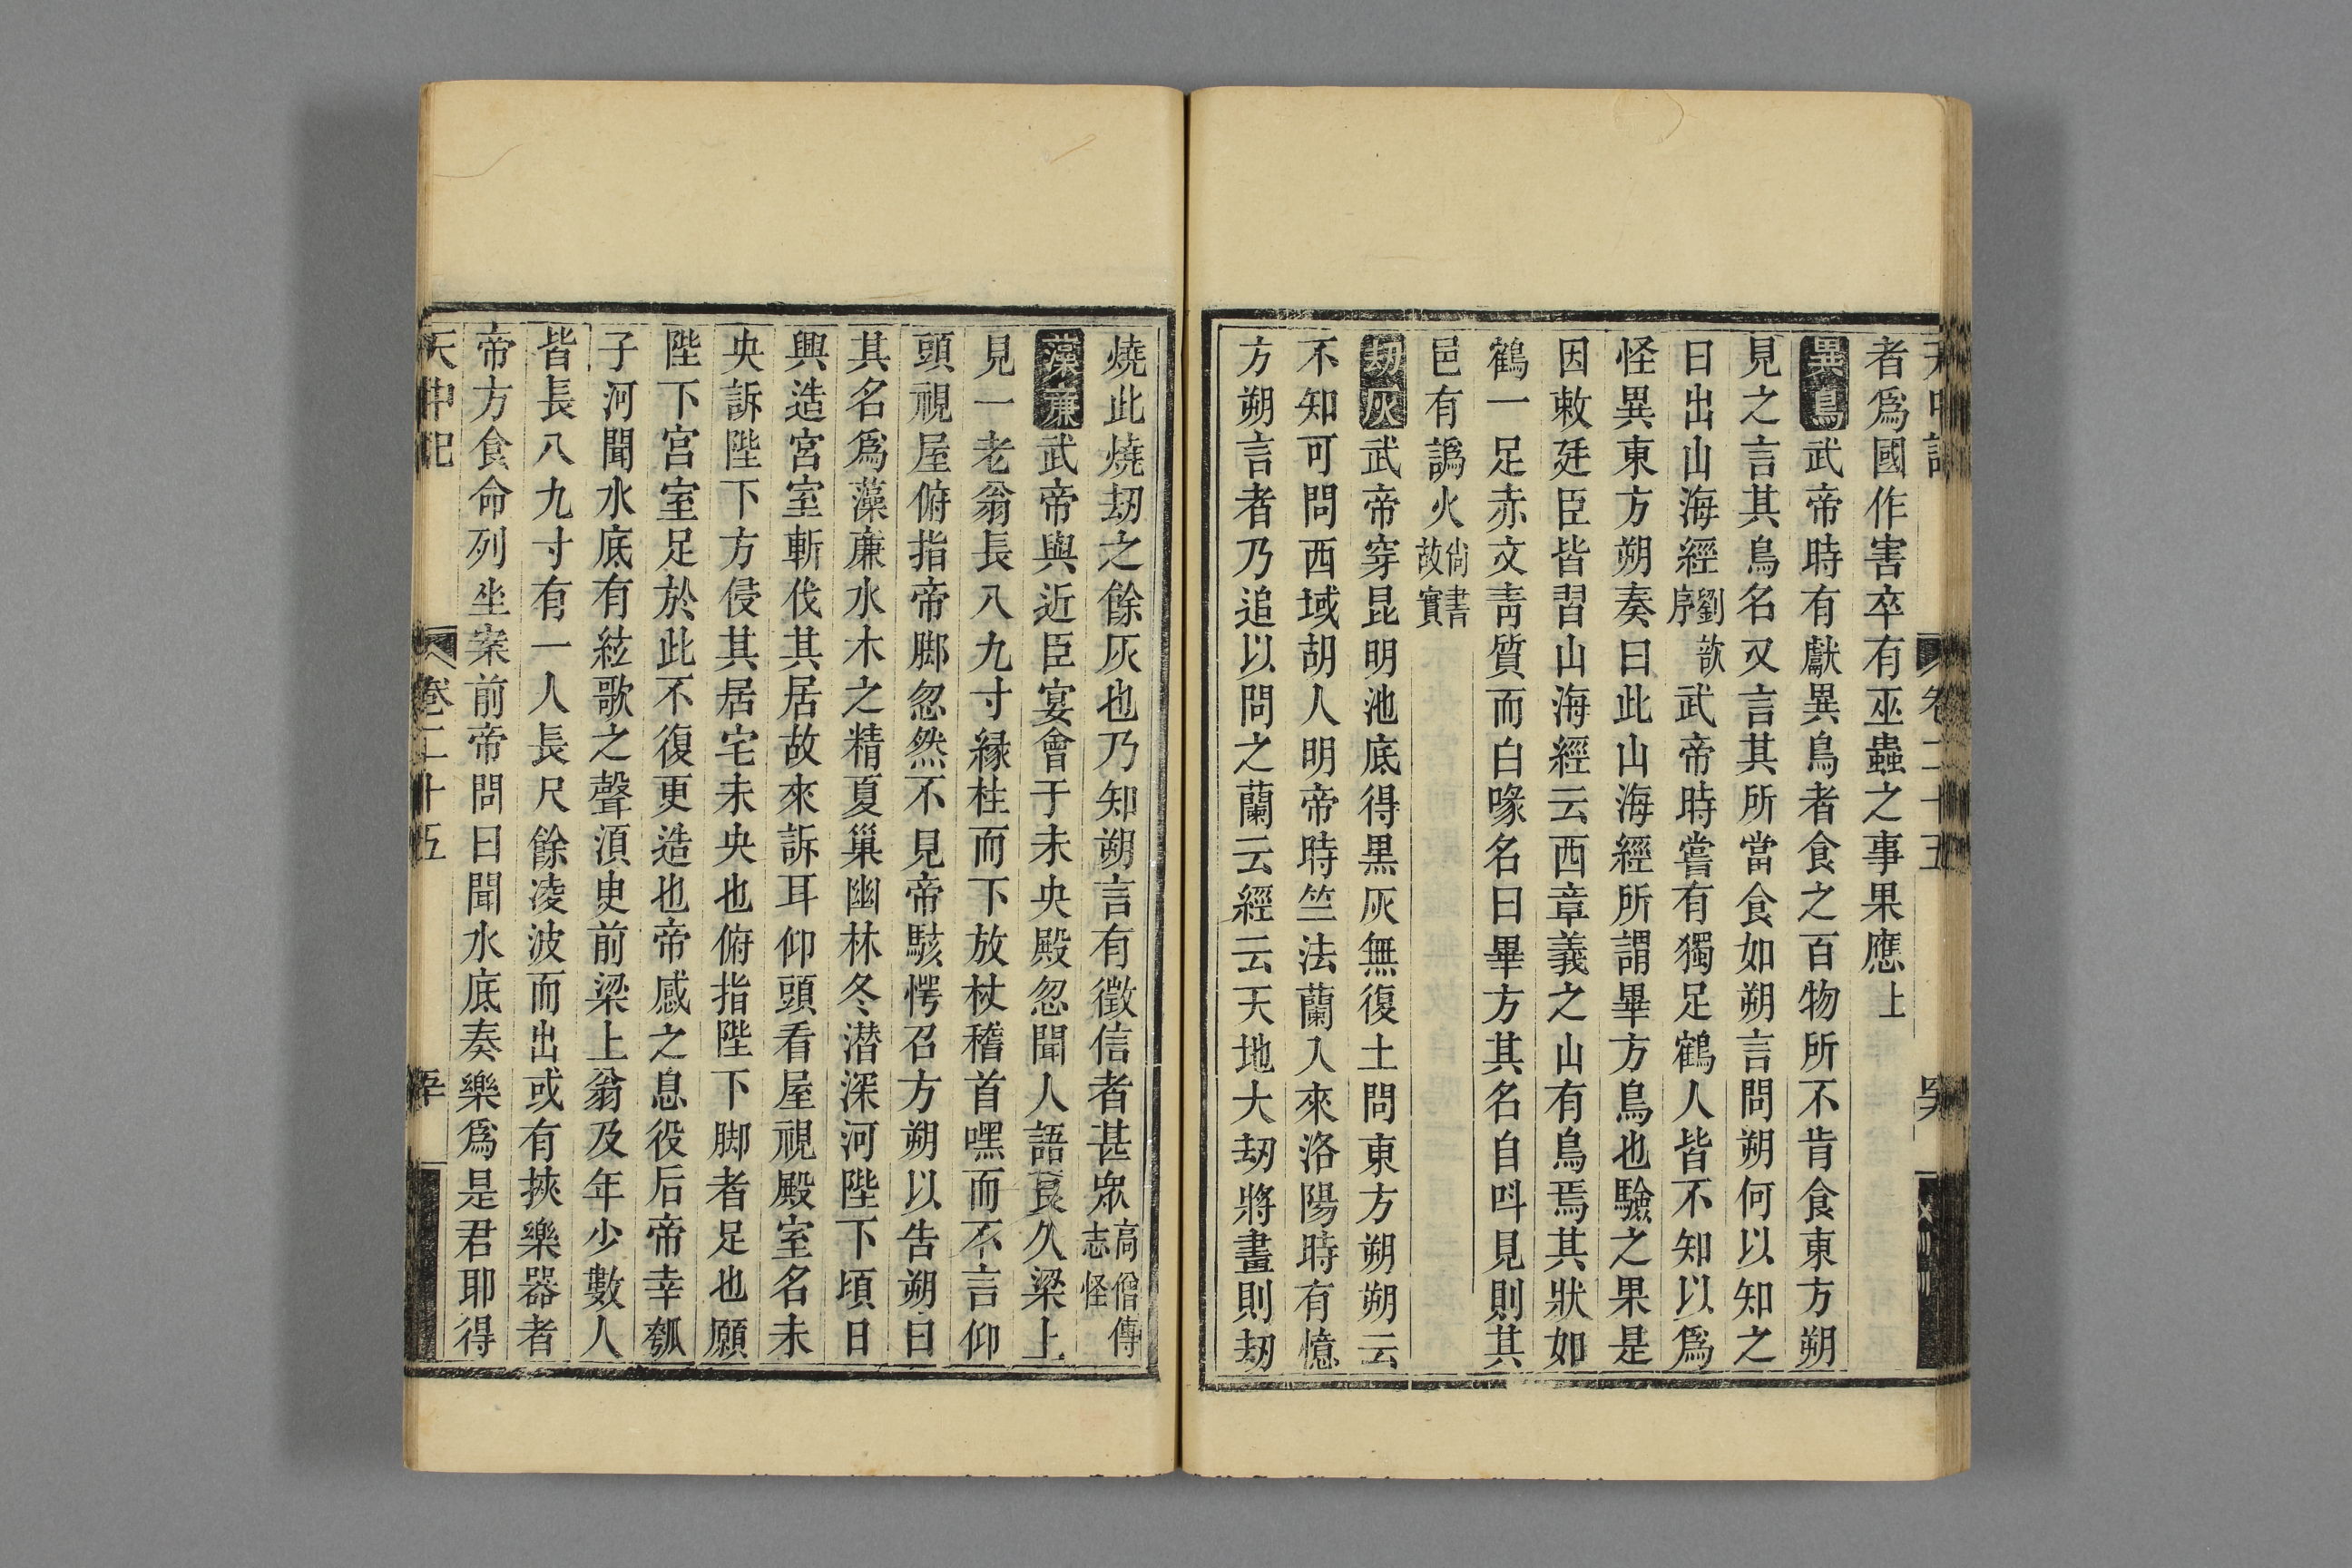 天中記 卷二十五
者爲國作害卒有巫蟲之事果應上
異鳥武帝時有獻異鳥者食之百物所不肯食東方朔
見之言其鳥名又言其所當食如朔言問朔何以知之
曰出山海經劉歆序武帝時嘗有獨足鶴人皆不知以爲
怪異東方朔奏曰此山海經所謂畢方鳥也驗之果是
因敕廷臣皆習山海經云西章義之山有鳥焉其狀如
鶴一足赤文靑質而白喙名曰畢方其名自呌見則其
邑有譌火尙書故實
刧灰武帝穿昆明池底得黒灰無復土問東方朔朔云
不知可問西域胡人明帝時竺法蘭入來洛陽時有憶
方朔言者乃追以問之蘭云經云天地大刧將盡則刧
燒此燒刧之餘灰也乃知朔言有徵信者甚眾高僧傳志怪
藻亷武帝與近臣宴會于未央殿忽聞人語良久梁上
見一老翁長八九寸縁柱而下放杖稽首嘿而不言仰
頭視屋俯指帝脚忽然不見帝駭愕召方朔以告朔曰
其名爲藻亷水木之精夏巢幽林冬潜深河陛下頃日
興造宮室斬伐其居故來訴耳仰頭看屋視殿室名未
央訴陛下方侵其居宅未央也俯指陛下脚者足也願
陛下宮室足於此不復更造也帝感之息役后帝幸瓠
子河聞水底有絃歌之聲湏臾前梁上翁及年少數人
皆長八九寸有一人長尺餘凌波而出或有挾樂器者
帝方食命列坐案前帝問曰聞水底奏樂爲是君耶得
天中記 卷二十五